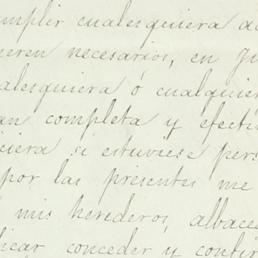 mplir cualesquiera
eren necesarios, en
alesquiera ó cualquier
an completa y efecti
ciera si estuviese pers
por las presentes me
mis herederos, albace
licar conceder y confir